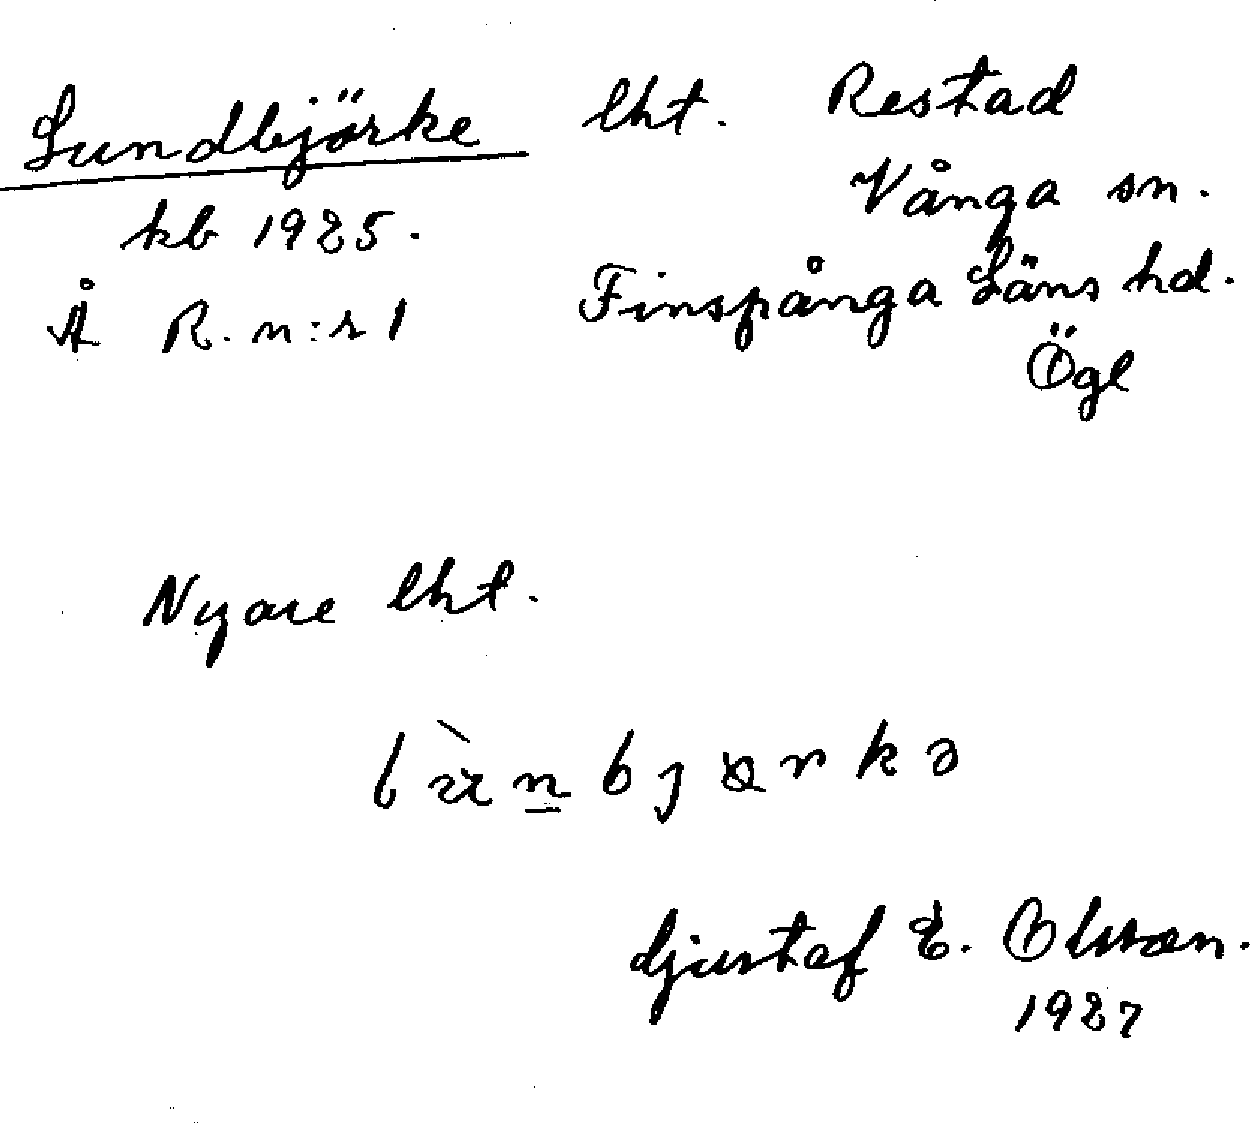 Lundbjörke lht. Restad
Vånga sn.
kb 1925.
Finspånga Läns hd.
Å R. n:r 1
Ögl
Nyare lht.
Gustaf E. Olsson.
1927